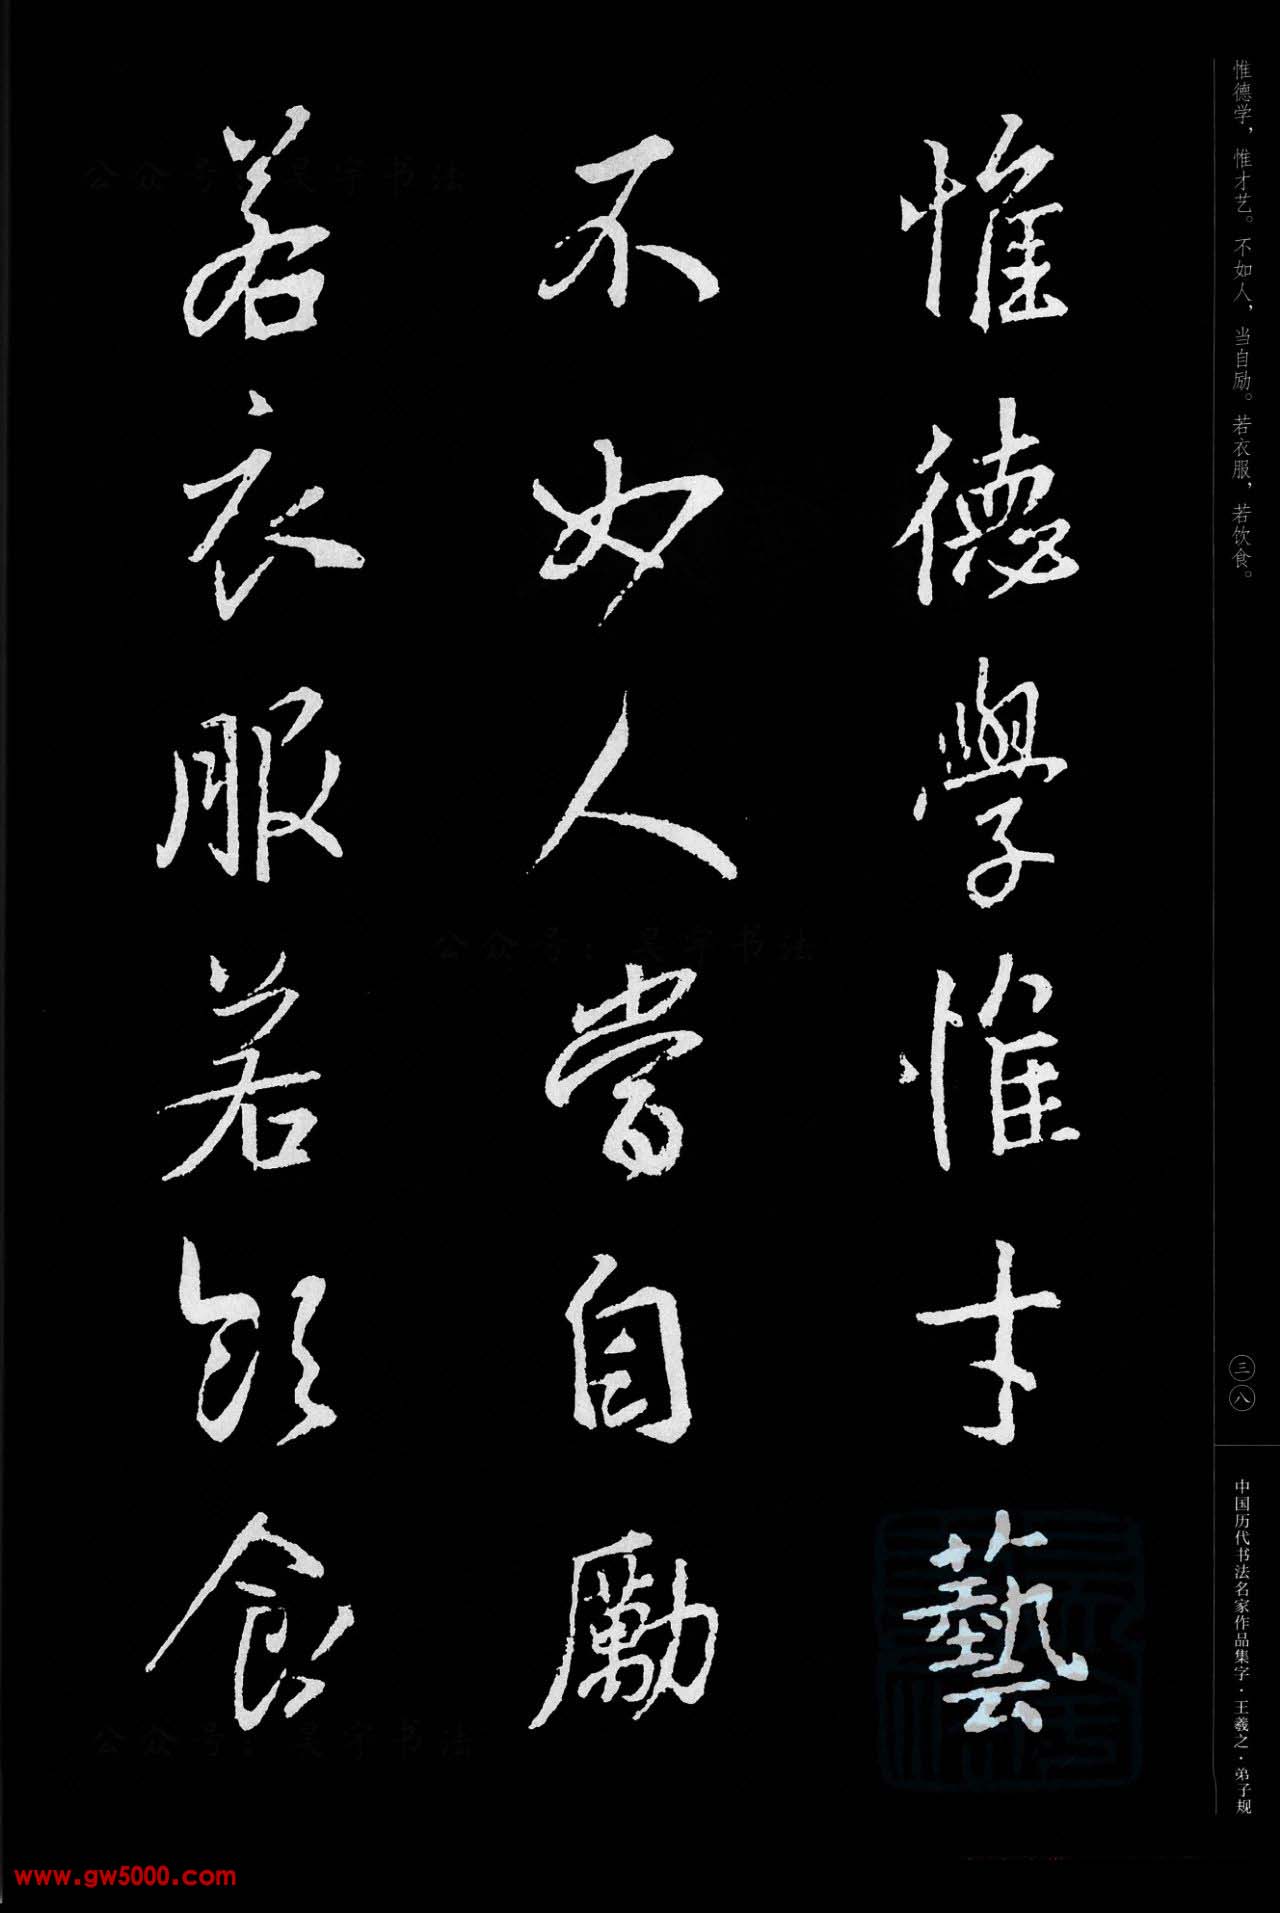 惟德学，惟才艺。不如人，当自励。若衣服，若饮食。
三八
中国历代书法名家作品集字·王羲之·弟子规
惟德學惟才藝
不如人當自勵
若衣服若飲食
公众号：昊宇书法
公众号：昊宇书法
公众号：昊宇书法
www.gw5000.com